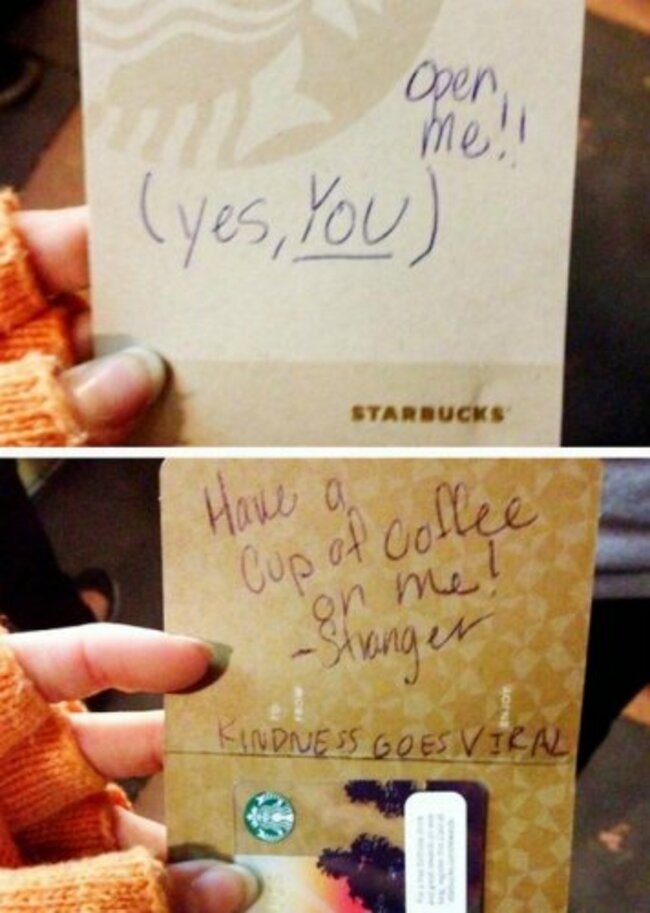 Open
me!!
(yes, YOU)
STARBUCKS
Have a
cup of coffee
on me!
-Stranger
TO
FROM
ENJOY
KINDNESS GOES VIRAL